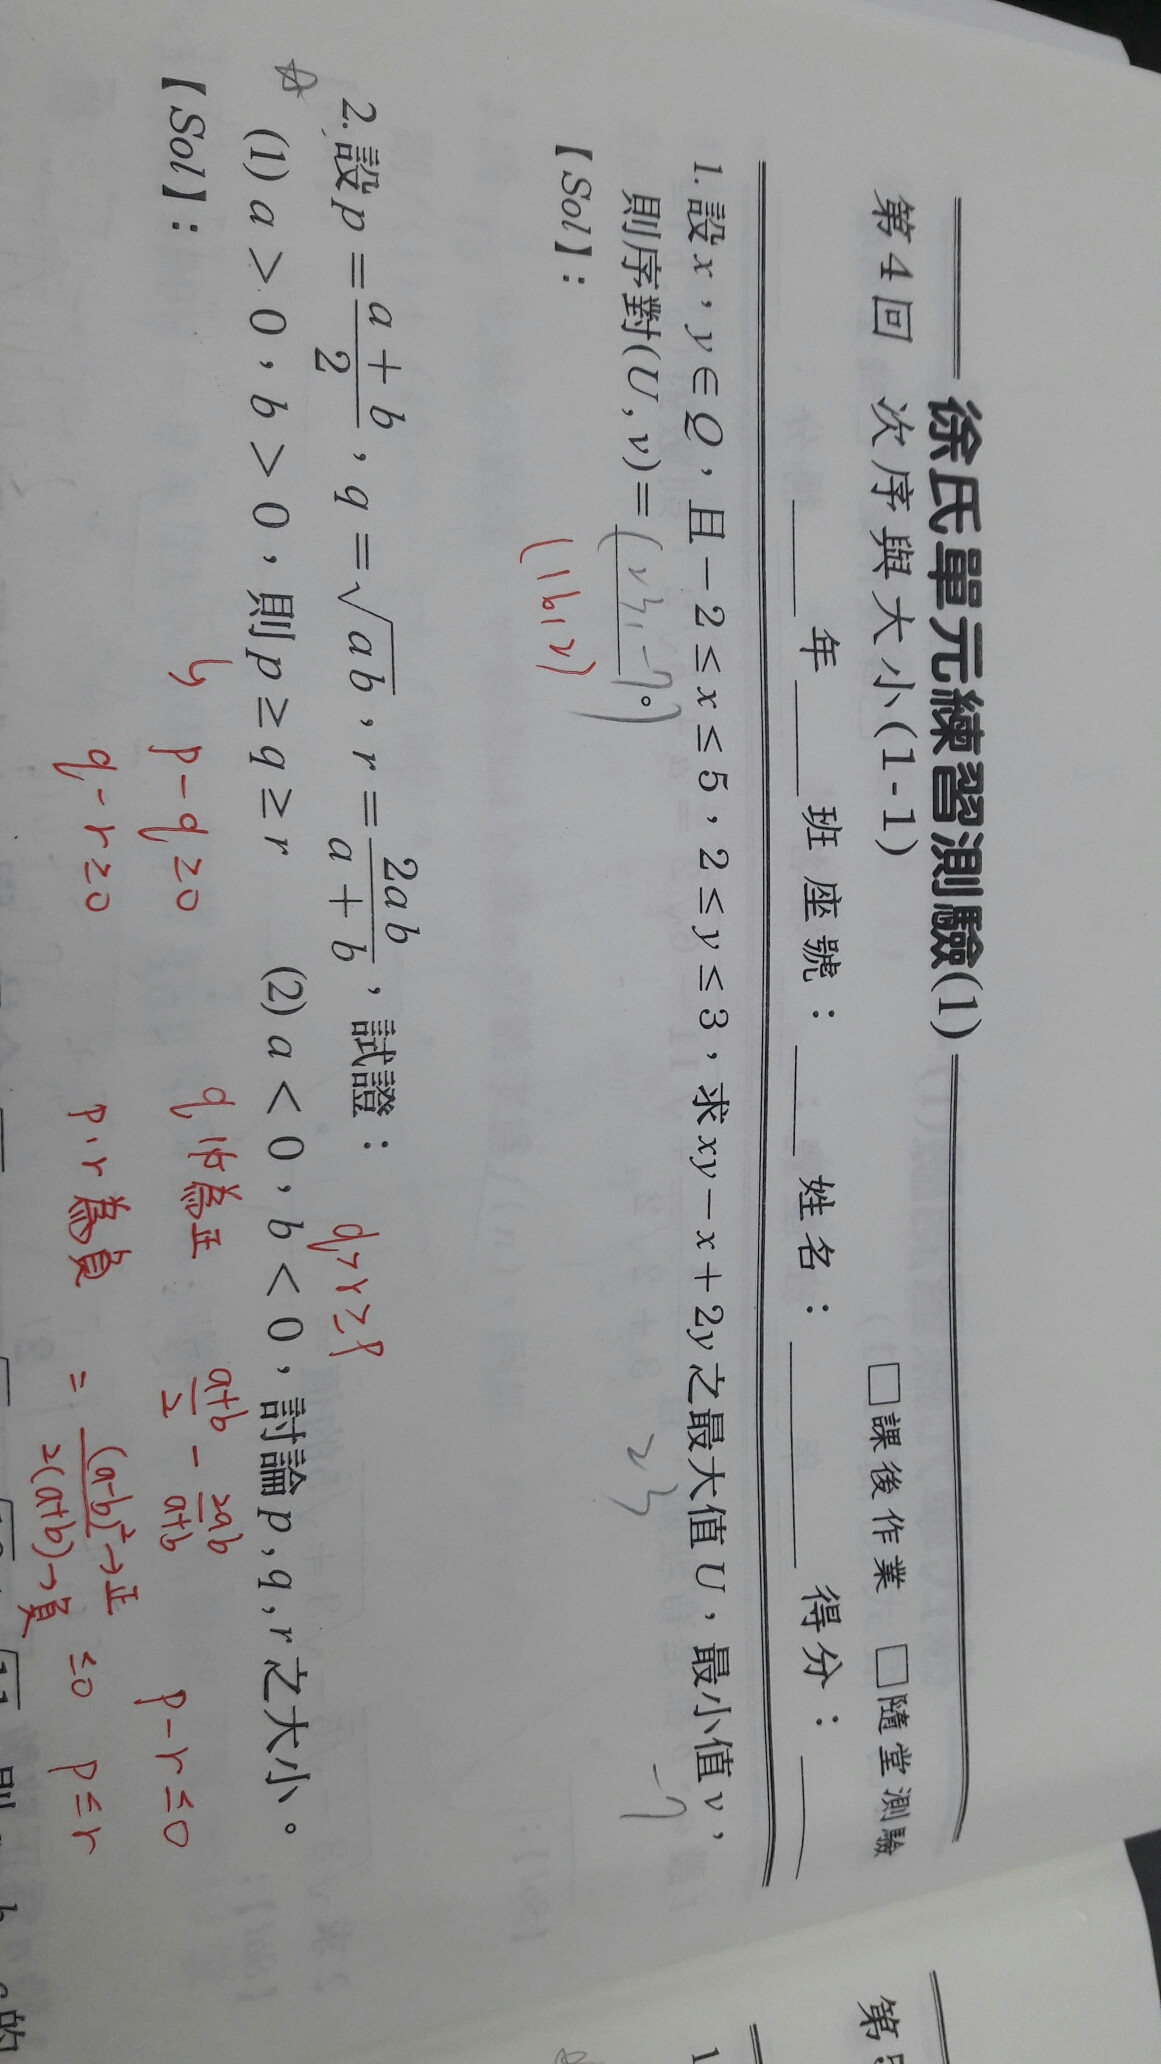 徐氏單元練習測驗(1)
第4回 次序與大小(1-1) □課後作業 □隨堂測驗
____年____班 座號：____ 姓名：________ 得分：____
1. 設x，y∈Q，且－2≤x≤5，2≤y≤3，求xy－x＋2y之最大值U，最小值v，
則序對(U, v)=(23, -7)。
23
-7
(16, 2)
【Sol】：
2. 設p＝\frac{a+b}{2}，q＝\sqrt{ab}，r＝\frac{2ab}{a+b}，試證：
q>r≥p
(1) a＞0，b＞0，則p≥q≥r (2) a＜0，b＜0，討論p, q, r之大小。
【Sol】：
p-q≥0
q-r≥0
q恆為正
p、r為負
\frac{a+b}{2} - \frac{2ab}{a+b}
= \frac{(a-b)^2→正}{2(a+b)→負} ≤0
p-r≤0
p≤r